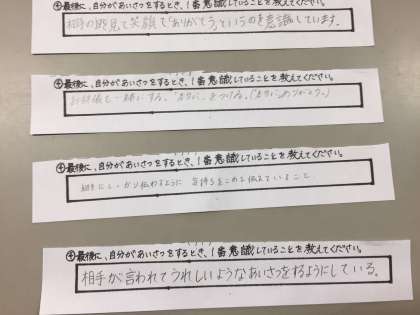 ④最後に、自分があいさつをするとき、1番意識していることを教えてください。
相手の目を見て笑顔で「ありがとう」というのを意識しています。
④最後に、自分があいさつをするとき、1番意識していることを教えてください。
お辞儀も一緒にする。
④最後に、自分があいさつをするとき、1番意識していることを教えてください。
相手にしっかり伝わるように 気持ちをこめて伝えていること
④最後に、自分があいさつをするとき、1番意識していることを教えてください。
相手が言われてうれしいようなあいさつをするようにしている。